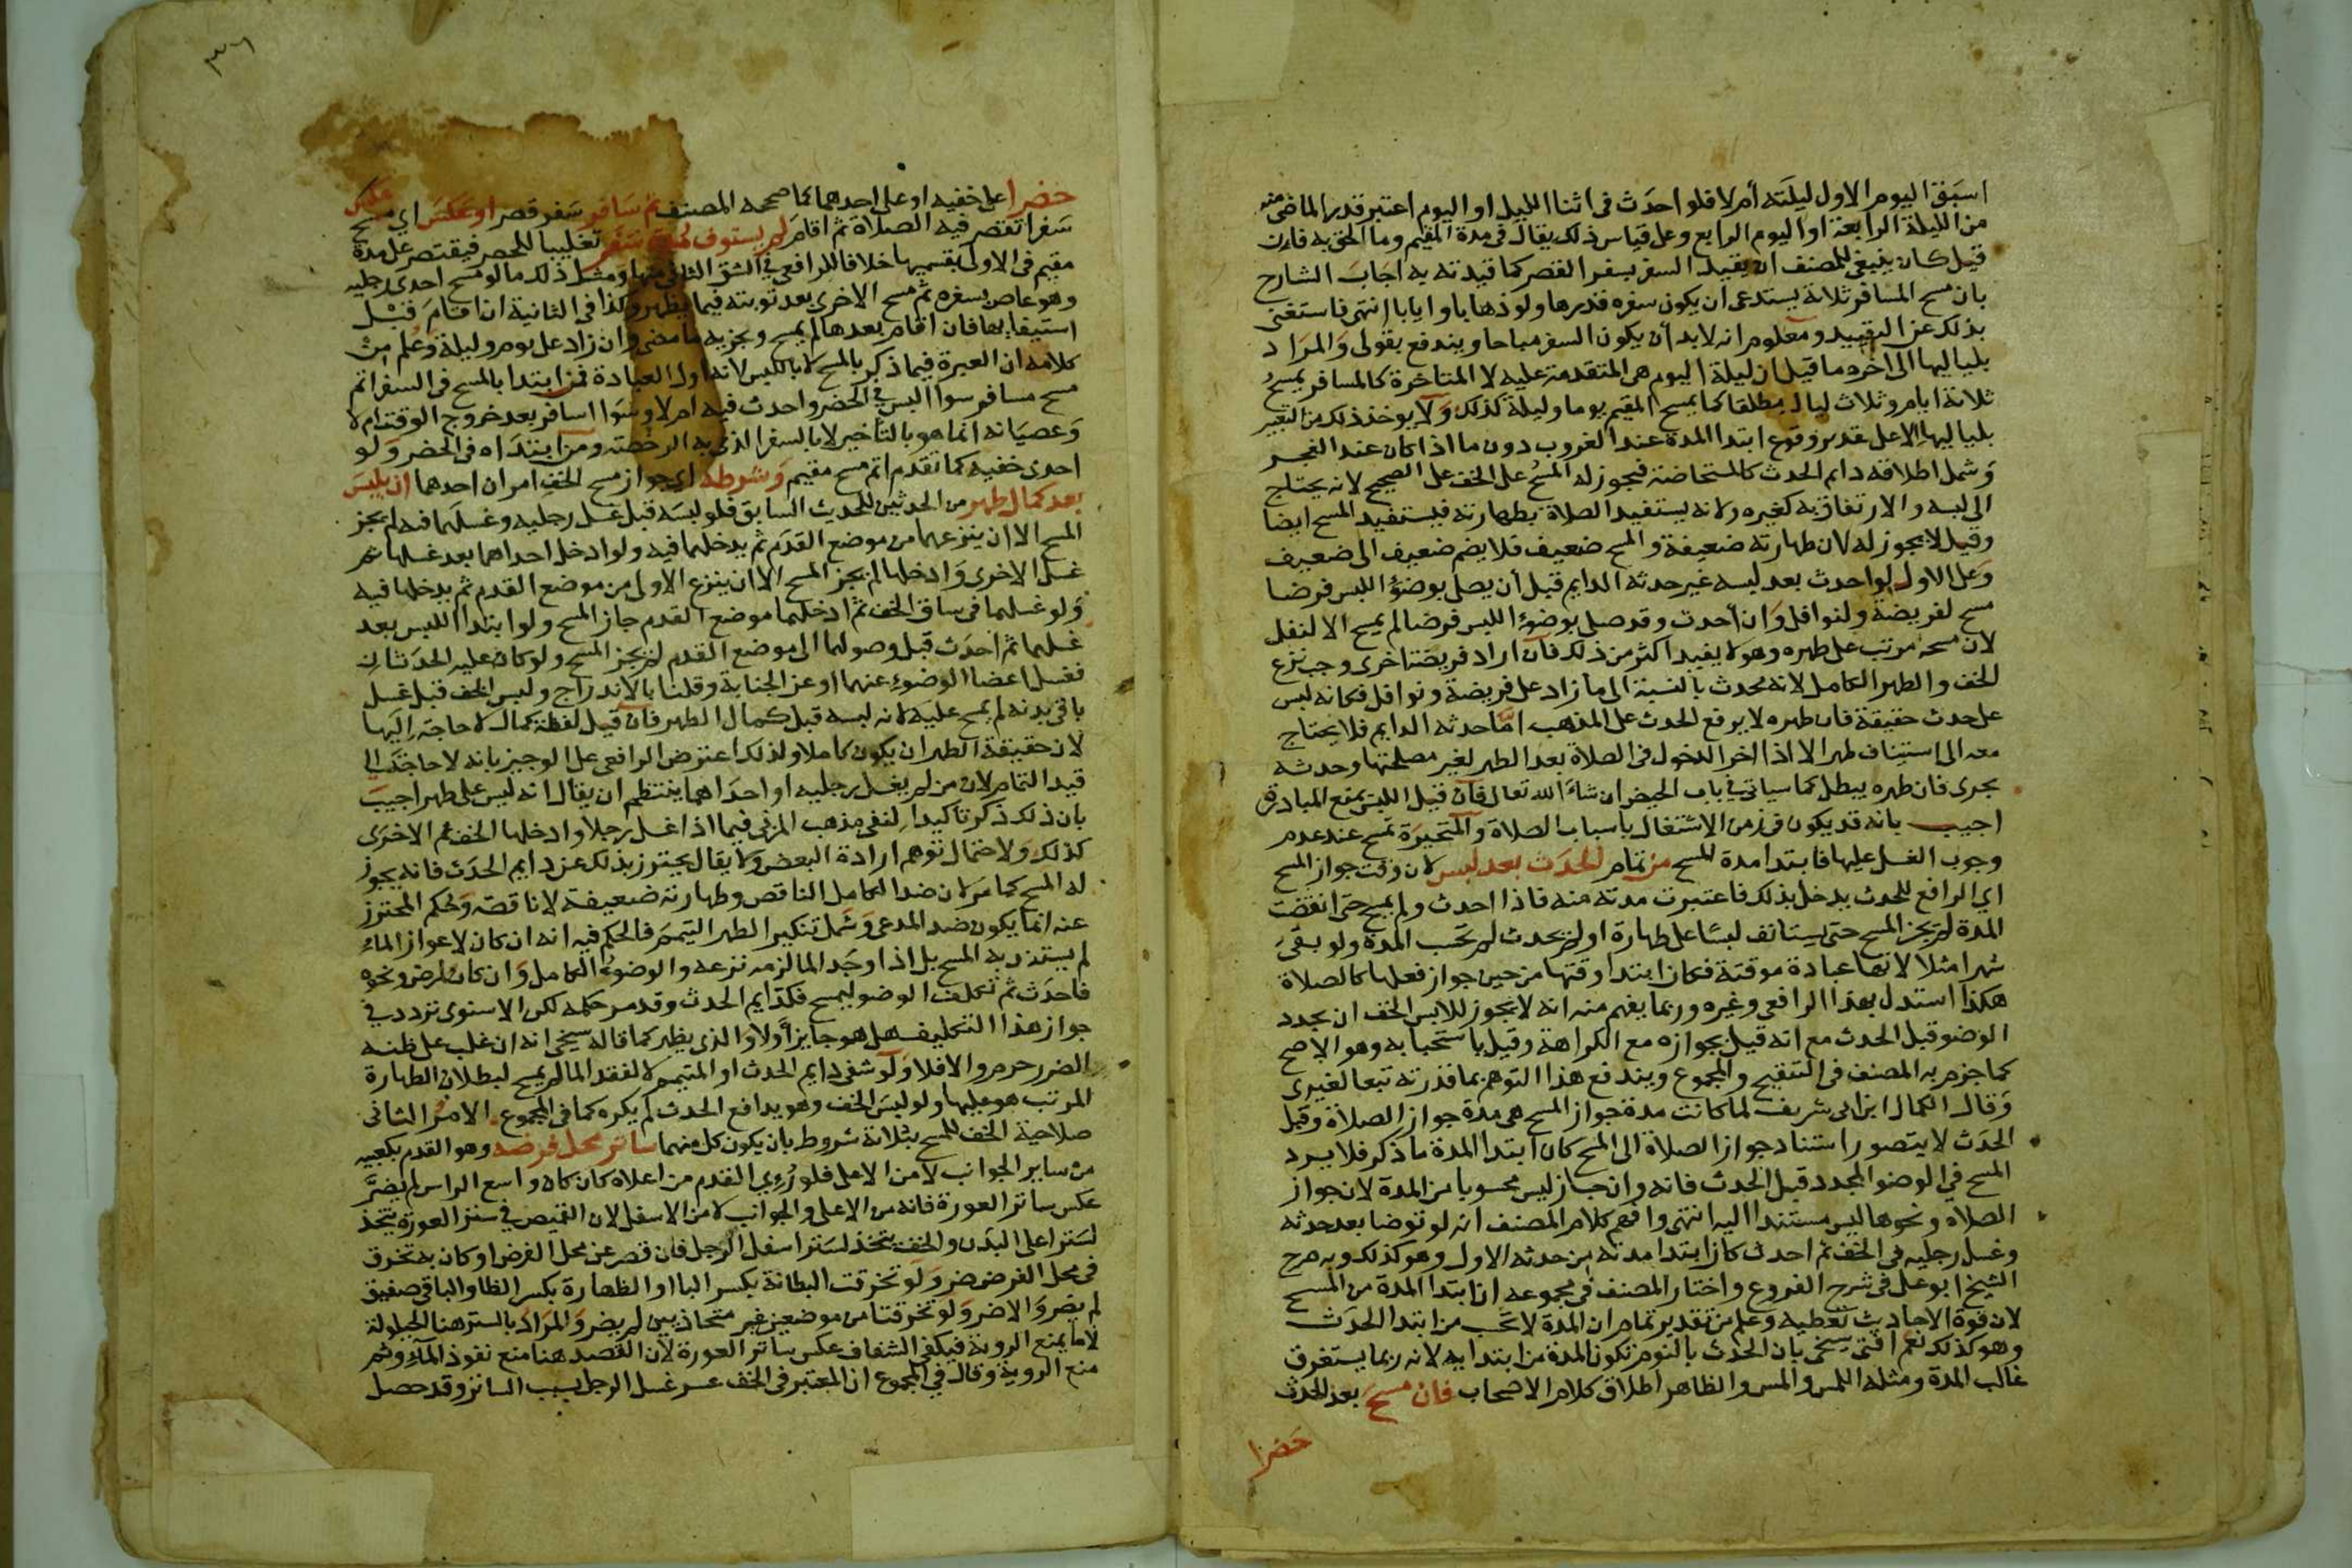 اسبق اليوم الاول ليلته أم لا فلو احدث فى اثنا الليل او اليوم اعتبر قدر الماضى منه
من الليلة الرابعة او اليوم الرابع وعلى قياس ذلك يقال فى مدة المقيم وما الحق به فان
قيل كان ينبغى للمصنف ان يقيد السفر بسفر القصر كما قيدته به اجاب الشارح
بان مسح المسافر ثلاثة يستدعى ان يكون سفره قدرها ولو ذهابا وايابا انتهى فاستغنى
بذلك عن التقييد ومعلوم انه لا بد أن يكون السفر مباحا ويندفع بقولى والمراد
بلياليها الى اخره ما قيل ان ليلة اليوم هى المتقدمة عليه لا المتاخرة كالمسافر يمسح
ثلاثة ايام وثلاث ليال مطلقا كما يمسح المقيم يوما وليلة كذلك ولا يوخذ ذلك من التعبير
بلياليها الا على تقدير وقوع ابتدا المدة عند الغروب دون ما اذا كان عند الفجر
وشمل اطلاقه دايم الحدث كالمستحاضة فيجوز له المسح على الخف على الصحيح لانه يحتاج
الى لبسه والارتفاق به كغيره ولانه يستفيد الصلاة بطهارته فيستفيد المسح ايضا
وقيل لا يجوز له لان طهارته ضعيفة والمسح ضعيف فلا يضم ضعيف الى ضعيف
وعلى الاول لو احدث بعد لبسه غير حدثه الدايم قبل أن يصلى بوضوء اللبس فرضا
مسح لفريضة ولنوافل وان أحدث وقد صلى بوضوء اللبس فرضا لم يمسح الا لنفل
لان مسحه مرتب على طهره وهو لا يفيد اكثر من ذلك فان اراد فريضة اخرى وجب نزع
الخف والطهر الكامل لانه محدث بالنسبة الى ما زاد على فريضة ونوافل فكانه لبس
على حدث حقيقة فان طهره لا يرفع الحدث على المذهب اما حدثه الدايم فلا يحتاج
معه الى استيناف طهر الا اذا اخر الدخول فى الصلاة بعد الطهر لغير مصلحتها وحدثه
يجرى فان طهره يبطل كما سياتى فى باب الحيض ان شاء الله تعالى فان قيل اللبس يمنع المبادرة
اجيب بانه قد يكون فى زمن الاشتغال باسباب الصلاة والمتحيرة تمسح عند عدم
وجوب الغسل عليها فابتدا مدة المسح من تمام الحدث بعد لبس لان وقت جواز المسح
اي الرافع للحدث يدخل بذلك فاعتبرت مدته منه فاذا احدث ولم يمسح حتى انقضت
المدة لم يجز المسح حتى يستانف لبسا على طهارة او لم يحدث لم تحسب المدة ولو بقى
شهرا مثلا لانها عبادة موقتة فكان ابتدا وقتها من حين جواز فعلها كالصلاة
هكذا استدل بهذا الرافعى وغيره وربما يفهم منه انه لا يجوز للابس الخف ان يجدد
الوضو قبل الحدث مع انه قيل بجوازه مع الكراهة وقيل باستحبابه وهو الاصح
كما جزم به المصنف فى التنقيح والمجموع ويندفع هذا التوهم بما قدرته تبعا لغيرى
وقال الكمال ابن ابى شريف لما كانت مدة جواز المسح هى مدة جواز الصلاة وقبل
الحدث لا يتصور استناد جواز الصلاة الى المسح كان ابتدا المدة ما ذكر فلا يرد
المسح فى الوضو المجدد قبل الحدث فانه وان جاز ليس محسوبا من المدة لان جواز
الصلاه ونحوها ليس مستندا اليه انتهى وافهم كلام المصنف انه لو توضا بعد حدثه
وغسل رجليه فى الخف ثم احدث كان ابتدا مدته من حدثه الاول وهو كذلك وبه صرح
الشيخ ابو على فى شرح الفروع واختار المصنف فى مجموعه ان ابتدا المدة من المسح
لان قوة الاحاديث تعطيه وعلم من تقدير تمام ان المدة لا تحسب من ابتدا الحدث
وهو كذلك نعم افتى شيخى بان الحدث بالنوم تكون المدة من ابتدايه لانه ربما يستغرق
غالب المدة ومثله اللمس والمس والظاهر اطلاق كلام الاصحاب فان مسح بعد الحدث
حضرا
٣٦
حضرا على خفيه او على احدهما كما صححه المصنف ثم سافر سفر قصر او عكس اي مسح
سفرا تقصر فيه الصلاة ثم اقام لم يستوف مدة سفر تغليبا للحضر فيقتصر على مدة
مقيم فى الاولى بقسميها خلافا للرافعى فى الشق الثانى منها ومثل ذلك ما لو مسح احدى رجليه
وهو عاص بسفره ثم مسح الاخرى بعد توبته فيما يظهر وكذا فى الثانية ان اقام قبل
استيفايها فان اقام بعدها لم يمسح ويجزيه ما مضى وان زاد على يوم وليلة وعلم من
كلامه ان العبرة فيما ذكر بالمسح لا باللبس لانه اول العبادة فمن ابتدا بالمسح فى السفر اتم
مسح مسافر سوا البس فى الحضر واحدث فيه ام لا وسوا اسافر بعد خروج الوقت ام لا
وعصيانه انما هو بالتأخير لا بالسفر الذى به الرخصة ومن ابتداه فى الحضر ولو
احدى خفيه كما تقدم اتم مسح مقيم وشرطه اي جواز مسح الخف امران احدهما ان يلبس
بعد كمال طهر من الحدثين للحديث السابق فلو لبسه قبل غسل رجليه وغسلهما فيه لم يجز
المسح الا ان ينزعهما من موضع القدم ثم يدخلهما فيه ولو ادخل احداهما بعد غسلها ثم
غسل الاخرى وادخلها لم يجز المسح الا ان ينزع الاولى من موضع القدم ثم يدخلها فيه
ولو غسلهما فى ساق الخف ثم ادخلهما موضع القدم جاز المسح ولو ابتدا اللبس بعد
غسلهما ثم احدث قبل وصولهما الى موضع القدم لم يجز المسح ولو كان عليه الحدثان
فغسل اعضا الوضوء عنهما او عن الجنابة وقلنا بالاندراج ولبس الخف قبل غسل
باقى بدنه لم يمسح عليه لانه لبسه قبل كمال الطهر فان قيل لفظة كمال لا حاجة اليها
لان حقيقة الطهر ان يكون كاملا ولذلك اعترض الرافعى على الوجيز بانه لا حاجة الى
قيد التمام لان من لم يغسل رجليه او احداهما ينتظم ان يقال انه ليس على طهر اجيب
بان ذلك ذكر تأكيدا لنفى مذهب المزنى فيما اذا غسل رجلا وادخلها الخف ثم الاخرى
كذلك ولاحتمال توهم ارادة البعض ولا يقال يحترز بذلك عن دايم الحدث فانه يجوز
له المسح كما مر لان ضد الكامل الناقص وطهارته ضعيفة لا ناقصة وحكم المحترز
عنه انما يكون ضد المدعى وشمل تنكير الطهر التيمم فالحكم فيه انه ان كان لاعواز الماء
لم يستفد به المسح بل اذا وجد الما لزمه نزعه والوضوء الكامل وان كان لمرض ونحوه
فاحدث ثم تكلف الوضو ليمسح فكدايم الحدث وقد مر حكمه لكن الاسنوى تردد فى
جواز هذا التكليف هل هو جايز أولا والذى يظهر كما قاله شيخى انه ان غلب على ظنه
الضرر حرم والا فلا ولو شفى دايم الحدث او المتيمم لا لفقد الما لم يمسح لبطلان الطهارة
المرتب هو عليها ولو لبس الخف وهو يدافع الحدث لم يكره كما فى المجموع الامر الثانى
صلاحية الخف للمسح بثلاثة شروط بان يكون كل منهما ساتر محل فرضه وهو القدم بكعبيه
من ساير الجوانب لا من الاعلى فلو رُؤي القدم من اعلاه كان كان واسع الراس لم يضر
عكس ساتر العورة فانه من الاعلى والجوانب لا من الاسفل لان القميص فى ستر العورة يتخذ
لستر اعلى البدن والخف يتخذ لستر اسفل الرجل فان قصر عن محل الفرض او كان به تخرق
فى محل الفرض ضر ولو تخرقت البطانة بكسر البا او الظهارة بكسر الظا والباقى صفيق
لم يضر والا ضر ولو تخرقتا من موضعين غير متحاذيين لم يضر والمراد بالستر هنا الحيلولة
لا ما يمنع الروية فيكفى الشفاف عكس ساتر العورة لان القصد هنا منع نفوذ الماء وثم
منع الروية وقال فى المجموع ان المعتبر فى الخف عسر غسل الرجل بسبب الساتر وقد حصل